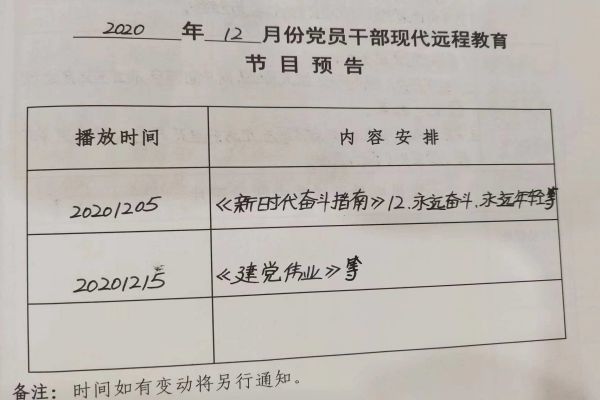 2020 年 12 月份党员干部现代远程教育
节目预告
播放时间 内容安排
20201205 《新时代奋斗指南》12.永远奋斗.永远年轻等
20201215 《建党伟业》等
备注：时间如有变动将另行通知。